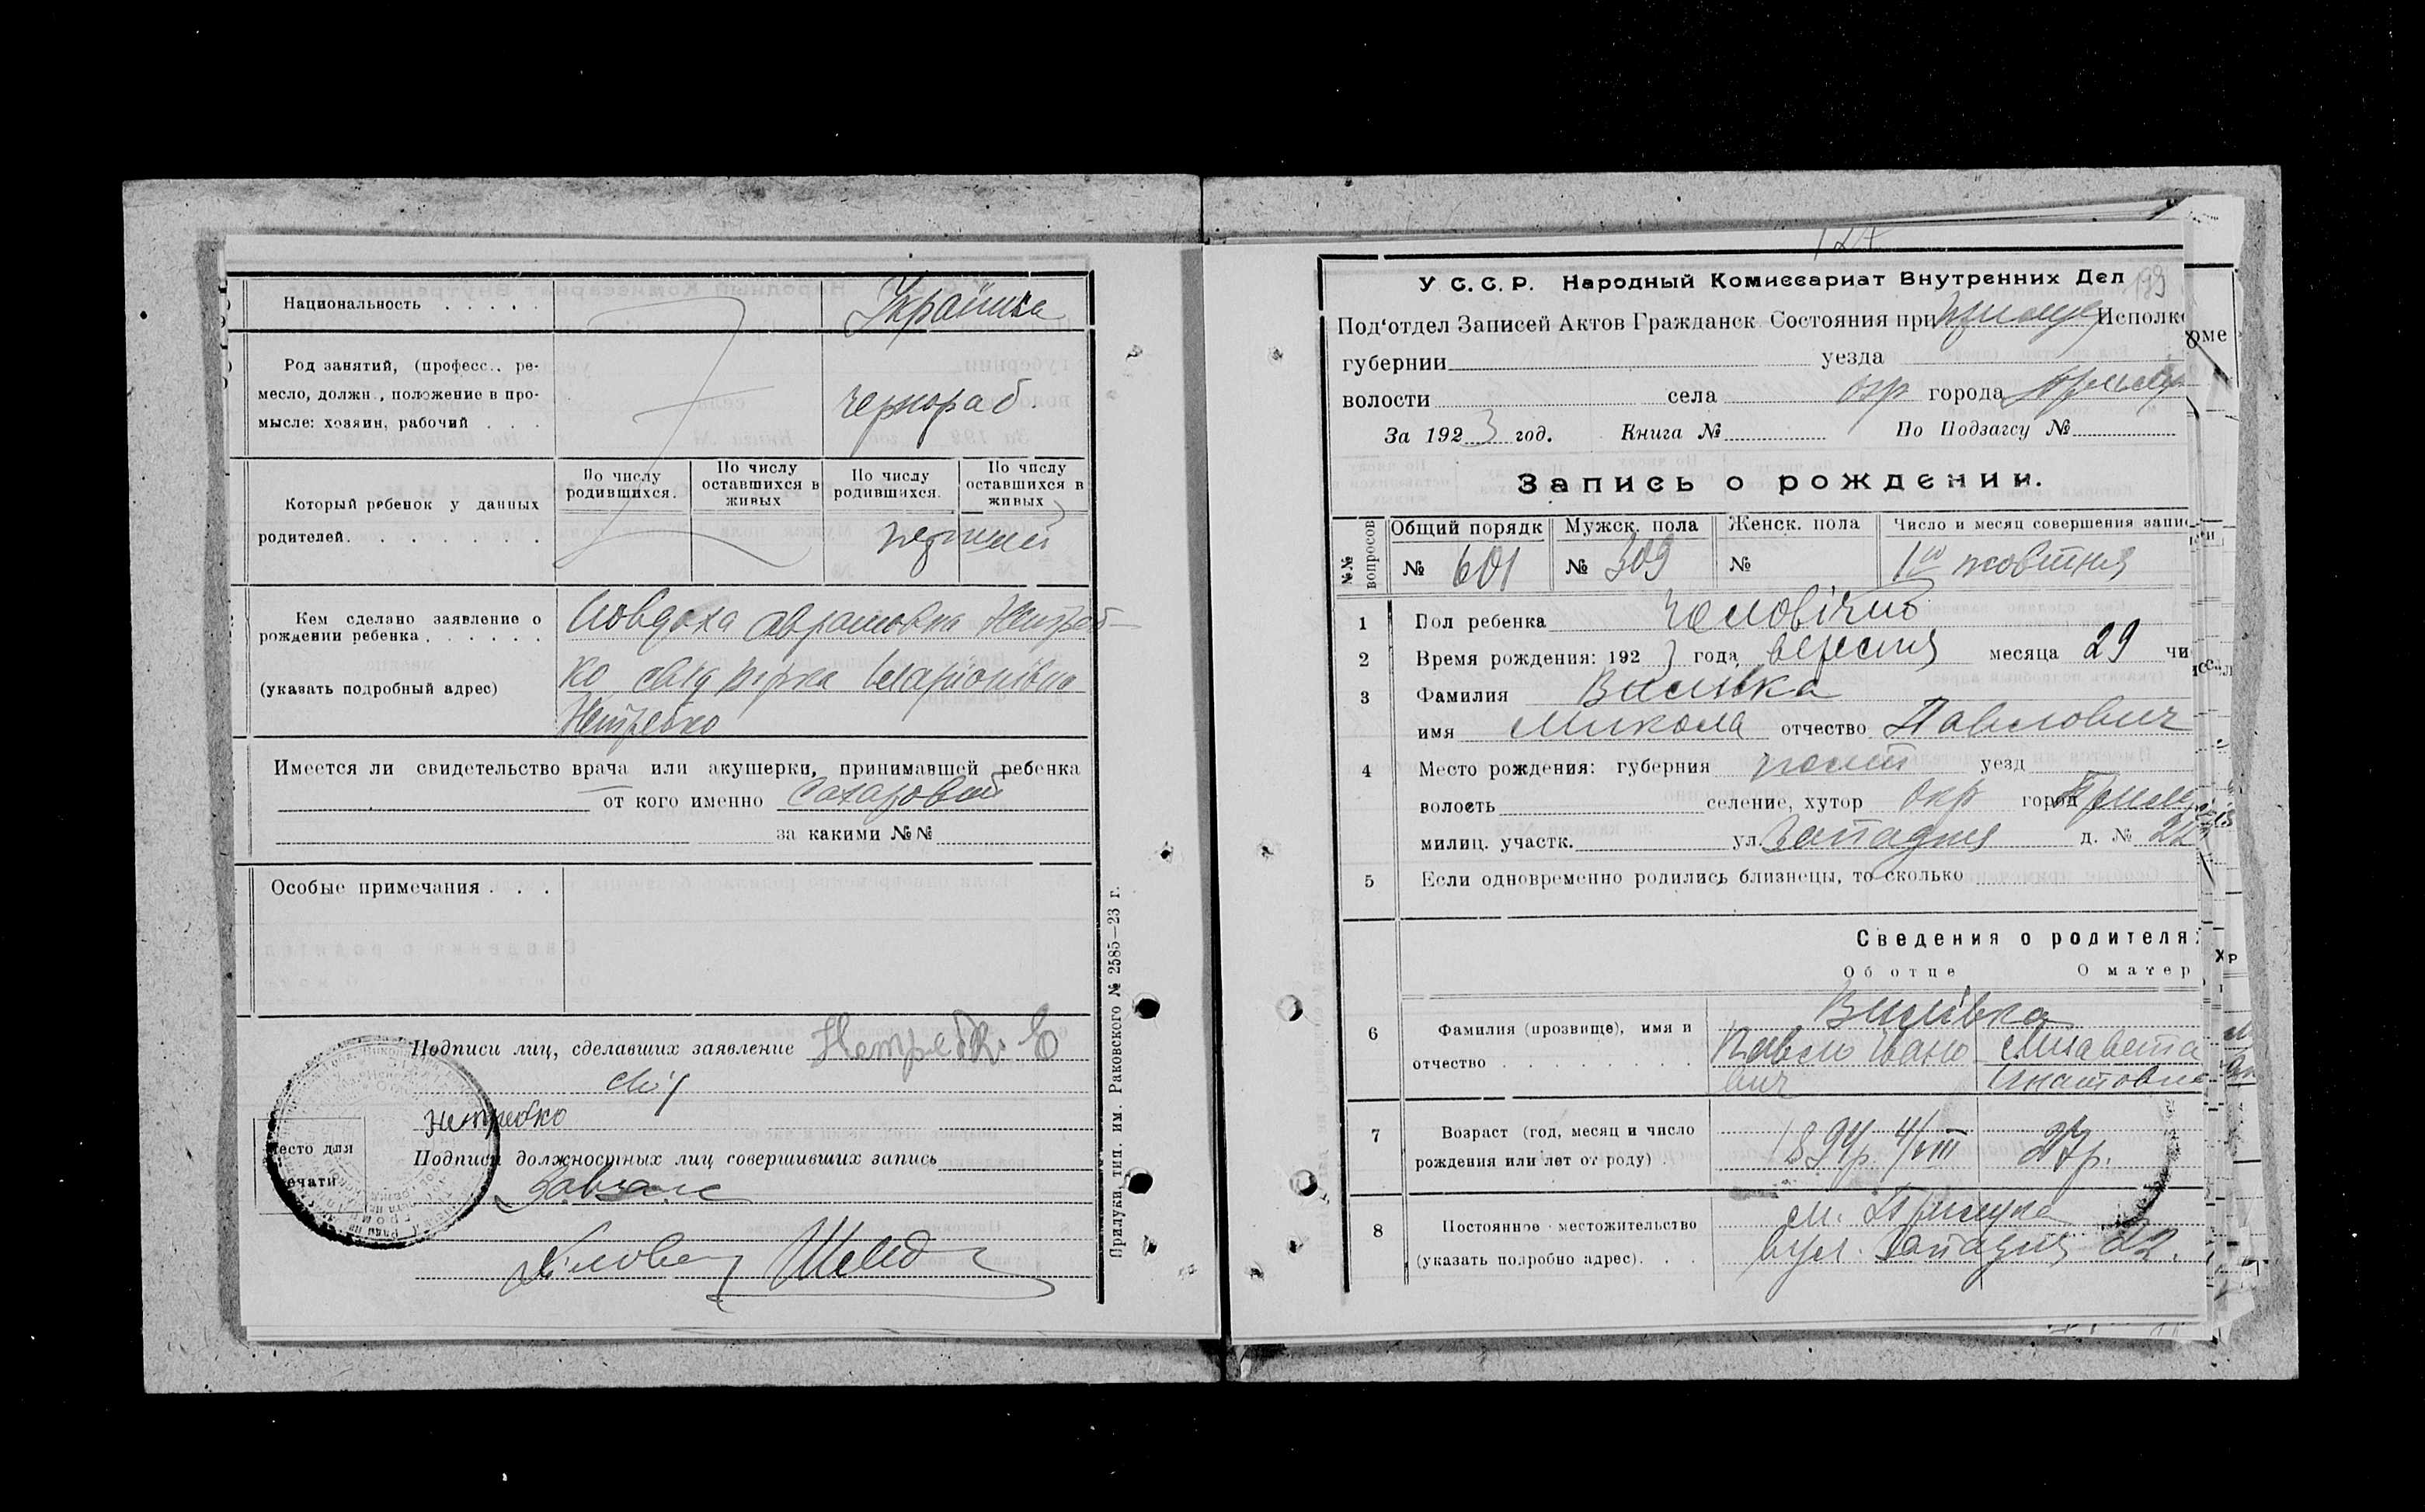 Национальность . . . . . Українка
Род занятий, (професс., ре-
месло, должн., положение в про-
мысле: хозяин, рабочий . . . чернораб.
Который ребенок у данных
родителей. . . . . . .
По числу родившихся. По числу оставшихся в живых По числу родившихся. По числу оставшихся в живых
перший
Кем сделано заявление о
рождении ребенка . . . . . .
(указать подробный адрес)
Явдоха Аврамовна Нетреб-
ко свід Іларіонівна
Нетребко
Имеется ли свидетельство врача или акушерки, принимавшей ребенка
от кого именно Сахаровой
за какими №№
Особые примечания . . .
Подписи лиц, сделавших заявление Нетребк. Е
Нетребко
Место для
печати
Подписи должностных лиц совершивших запись
Завзагс
Прилуки, тип. им. Раковского № 2585—23 г.
193
У С. С. Р. Народный Комиссариат Внутренних Дел
Под'отдел Записей Актов Гражданск Состояния при Прилуц Исполк
губернии уезда
волости села окр города Прилуц
За 192 3 год. Книга № По Подзагсу №
Запись о рождении.
№№ вопросов
Общий порядк Мужск. пола Женск. пола Число и месяц совершения запис
№ 601 № 309 № 1го жовтня
1 Пол ребенка чоловічис
2 Время рождения: 192 3 года, вересня месяца 29 чи
3 Фамилия Вилівка
имя Микола отчество Павлович
4 Место рождения: губерния полт уезд
волость селение, хутор окр город Прилу
милиц. участк. ул. Западня д. № 22
5 Если одновременно родились близнецы, то сколько
Сведения о родителя
Об отце О матер
6 Фамилия (прозвище), имя и
отчество . . . . . . . .
Вилівка
Павло Івано Лизавета
вич Ігнатовна
7 Возраст (год, месяц и число
рождения или лет от роду) . 1894р 4/VIII 27р.
8 Постоянное местожительство
(указать подробно адрес). . .
м. Прилука
вул. Западня 22.